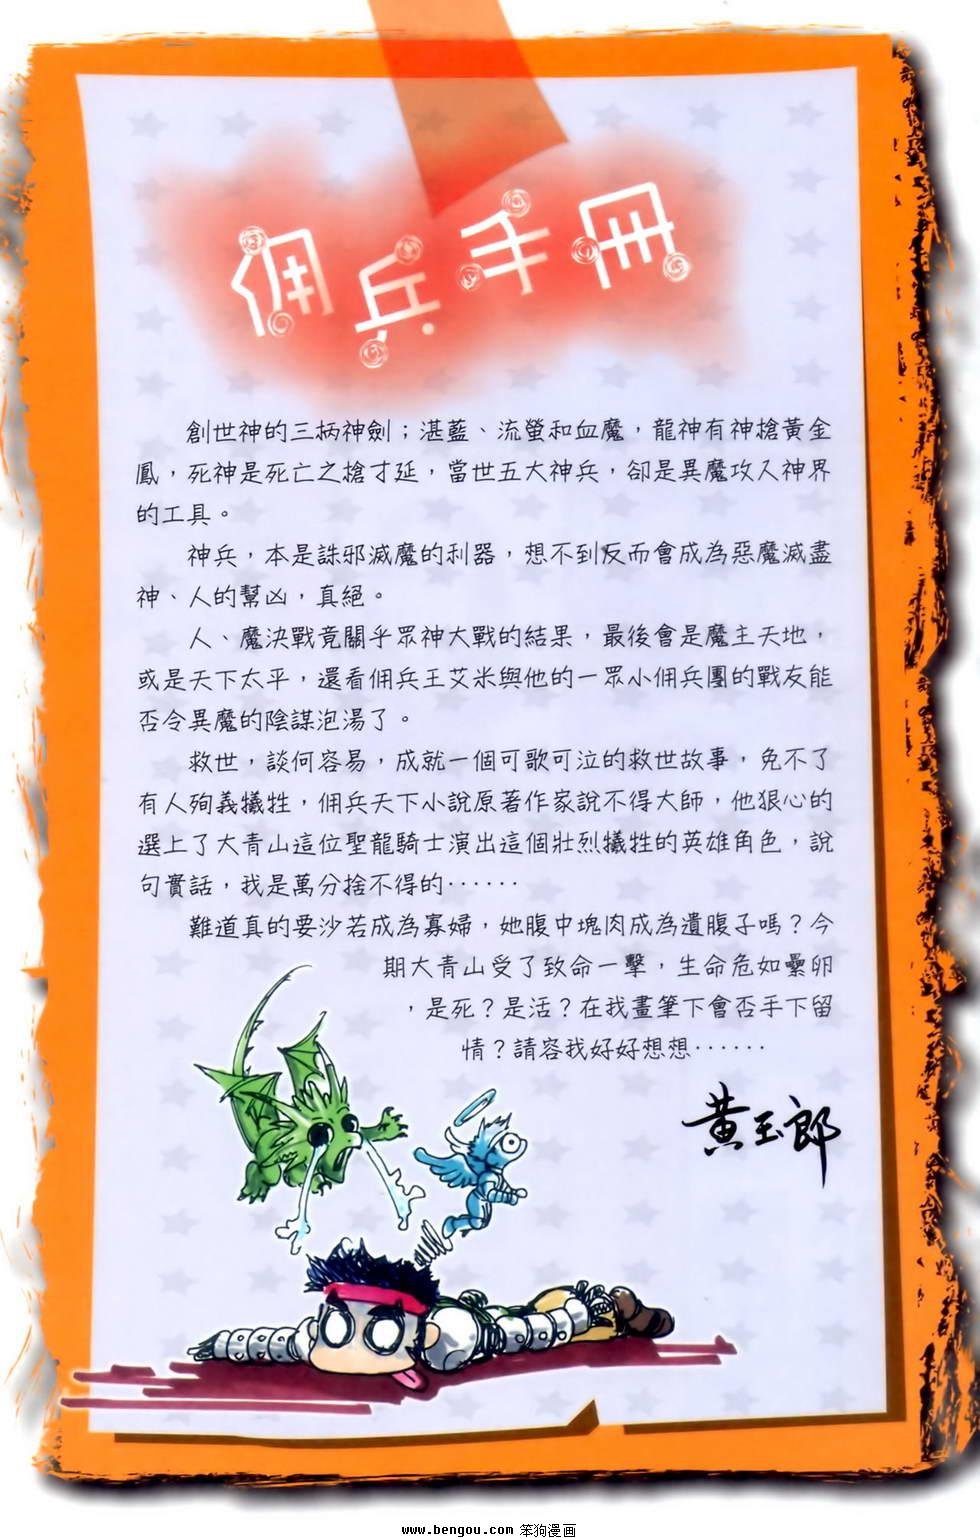 佣兵手冊
創世神的三柄神劍；湛藍、流螢和血魔，龍神有神槍黃金
鳳，死神是死亡之槍才延，當世五大神兵，卻是異魔攻入神界
的工具。
神兵，本是誅邪滅魔的利器，想不到反而會成為惡魔滅盡
神、人的幫凶，真絕。
人、魔決戰竟關乎眾神大戰的結果，最後會是魔主天地，
或是天下太平，還看佣兵王艾米與他的一眾小佣兵團的戰友能
否令異魔的陰謀泡湯了。
救世，談何容易，成就一個可歌可泣的救世故事，免不了
有人殉義犧牲，佣兵天下小說原著作家說不得大師，他狠心的
選上了大青山這位聖龍騎士演出這個壯烈犧牲的英雄角色，說
句實話，我是萬分捨不得的······
難道真的要沙若成為寡婦，她腹中塊肉成為遺腹子嗎？今
期大青山受了致命一擊，生命危如纍卵
，是死？是活？在我畫筆下會否手下留
情？請容我好好想想······
黃玉郎
www.bengou.com 笨狗漫画